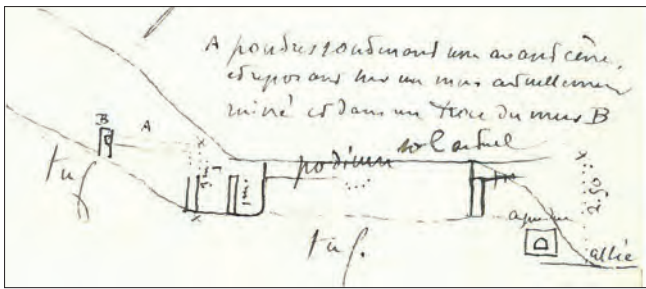 A poutres soutenant une avant-cène,
et reposant sur un mur actuellement
ruiné et dans un trou du mur B
sol actuel
podium
B
A
tuf
tuf.
2.50
allée